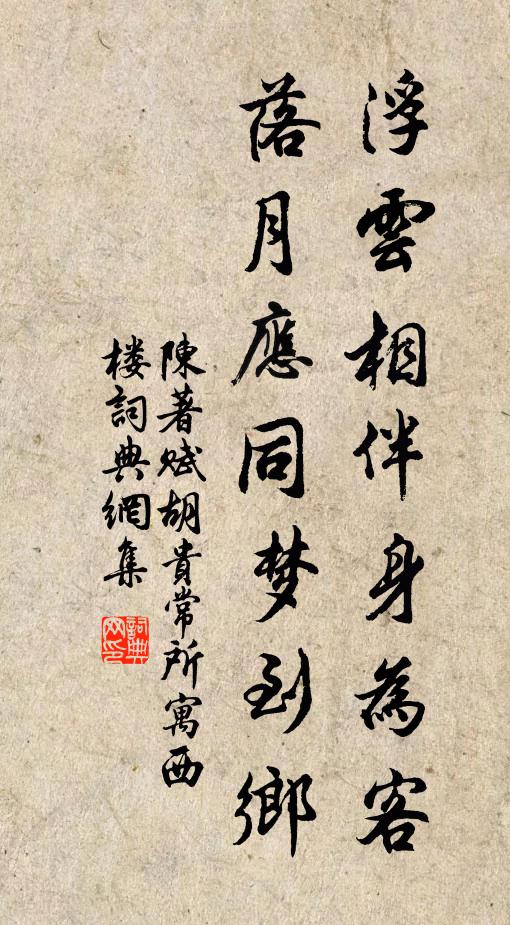 浮雲相伴身為客
落月應同梦到鄉
陳著赋胡貴常所寓西
楼詞典網集
詞典
网印